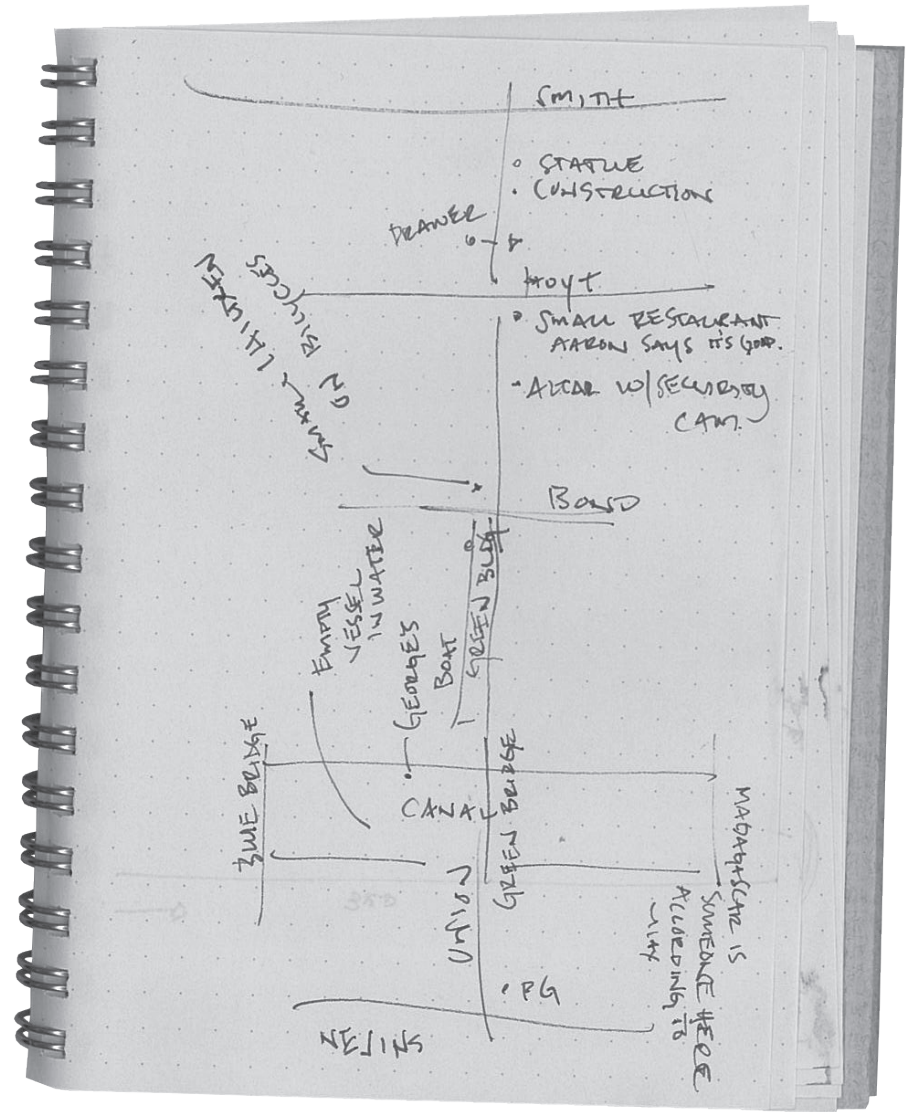 SMITH
STATUE
CONSTRUCTION
DRAWER
HOYT
SMALL RESTAURANT
AARON SAYS IT'S GOOD.
ALTAR W/SECURITY
CAM.
SMALL
ON BICYCLES
BOND
EMPTY
VESSEL
IN WATER
GEORGE'S
BOAT
GREEN BLDG
BLUE BRIDGE
CANAL
GREEN BRIDGE
UNION
MADAGASCAR IS
SOMEONE HERE
ACCORDING TO
MAX
PG
NEVINS